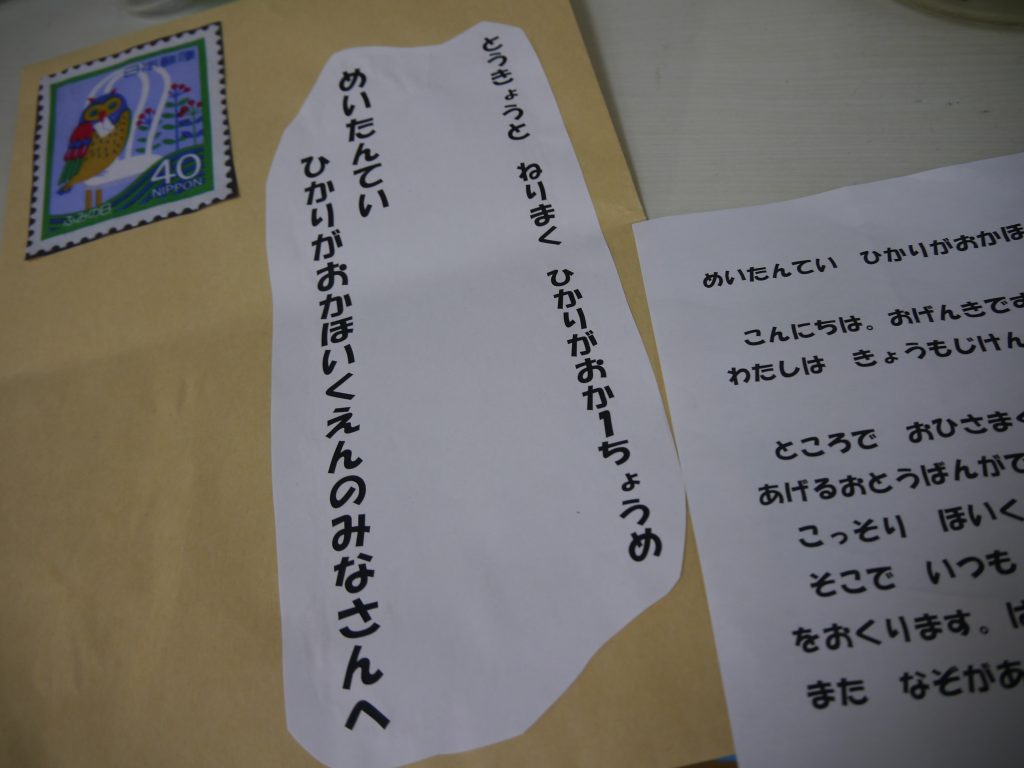 日本郵便
40
NIPPON
ふみの日
とうきょうと ねりまく ひかりがおか1ちょうめ
めいたんてい
ひかりがおかほいくえんのみなさんへ
めいたんてい ひかりがおかほ
こんにちは。おげんきです
わたしは きょうもじけん
ところで おひさまぐ
あげるおとうばんがで
こっそり ほいく
そこで いつも
をおくります。は
また なぞがあ